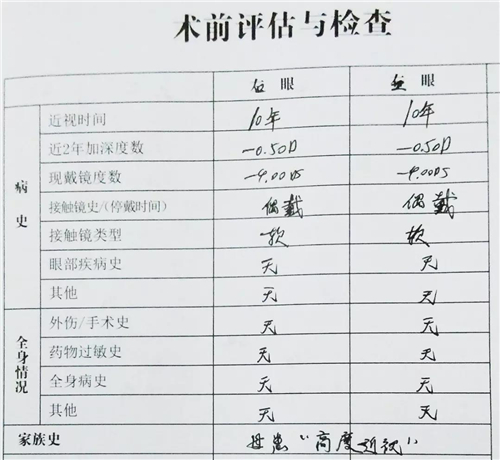 术前评估与检查
右眼 左眼
病史
近视时间 10年 10年
近2年加深度数 -0.50D -0.50D
现戴镜度数 -4.00DS -4.00DS
接触镜史/(停戴时间) 偶戴 偶戴
接触镜类型 软 软
眼部疾病史 无 无
其他 无 无
全身情况
外伤/手术史 无 无
药物过敏史 无 无
全身病史 无 无
其他 无 无
家族史 母患"高度近视"